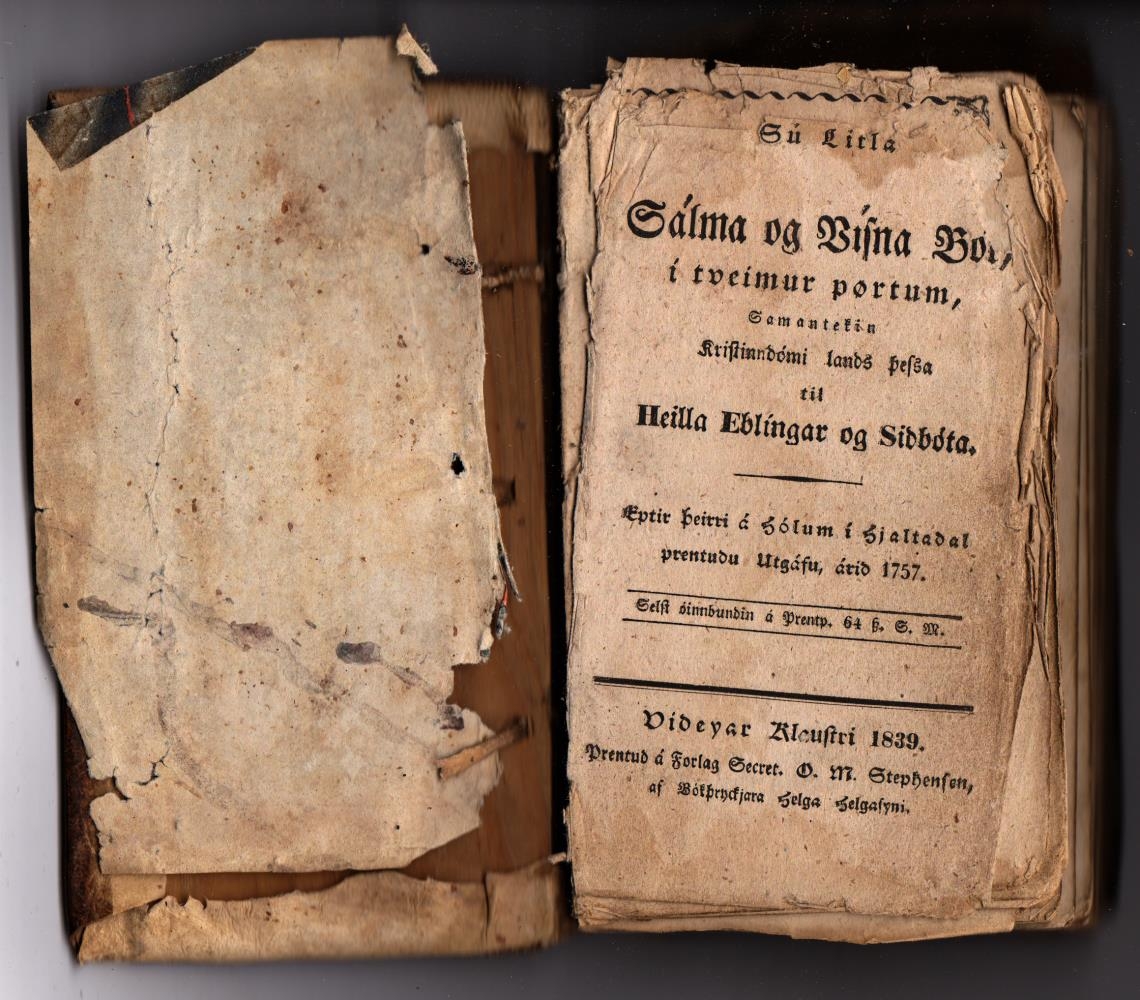 Sú Litla
Sálma og Vísna
í tveimur pørtum,
Samantekin
Kristinndómi lands þessa
til
Heilla Eblíngar og Sidbóta.
Eptir þeirri á Hólum í Hjaltadal
prentudu Utgáfu, árid 1757.
Selst óinnbundin á Prentp. 64 ß. S. M.
Videyar Klaustri 1839.
Prentud á Forlag Secret. O. M. Stephensen,
af Bókþryckjara Helga Helgasyni.